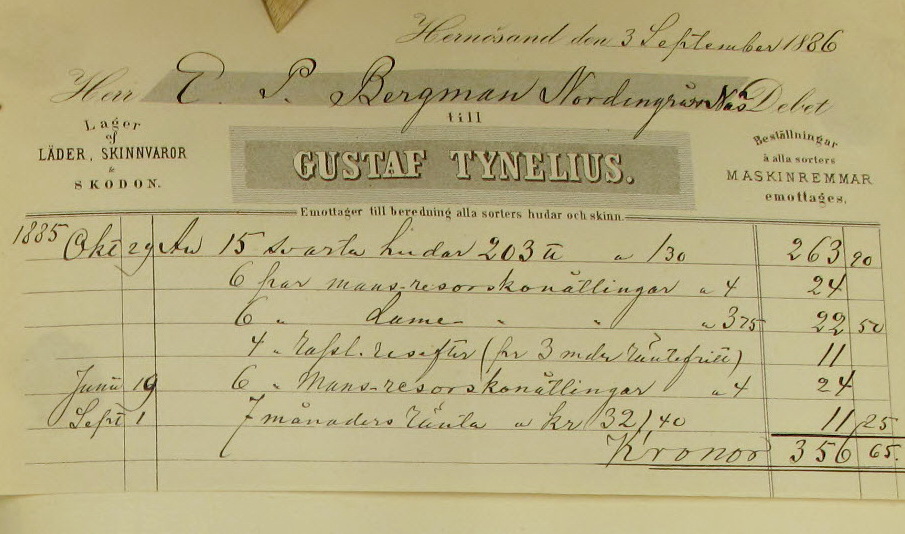 Hernösand den 3 September 1886
Herr E. P. Bergman Nordingrå Näs Debet
till
Lager
af
LÄDER, SKINNVAROR
&
SKODON.
GUSTAF TYNELIUS.
Beställningar
å alla sorters
MASKINREMMAR
emottages.
Emottager till beredning alla sorters hudar och skinn.
1885 Okt 29 An 15 svarta hudar 203 ℔ a 1/30 263 90
6 par mans-resorskonåtlingar a 4 24
6 " Dame- " " a 3 75 22 50
4 " (för 3 mdr räntefritt) 11
Junii 19 6 " Mans-resorskonåtlingar a 4 24
Sept 1 7 månaders ränta a kr 32/40 11 25
Kronor 356 65.